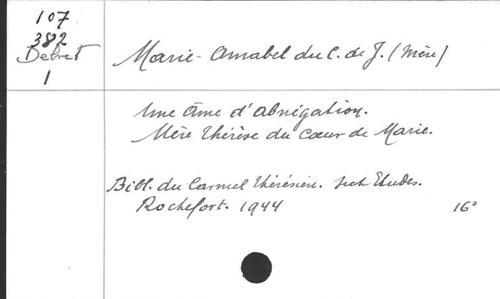 107
382
Debret
1
Marie-Amabel du C. de J. (Mère)
Une âme d'abnégation.
Mère Thérèse du Cœur de Marie.
Bibl. du Carmel thérésien. sect Etudes.
Rochefort. 1944 16°